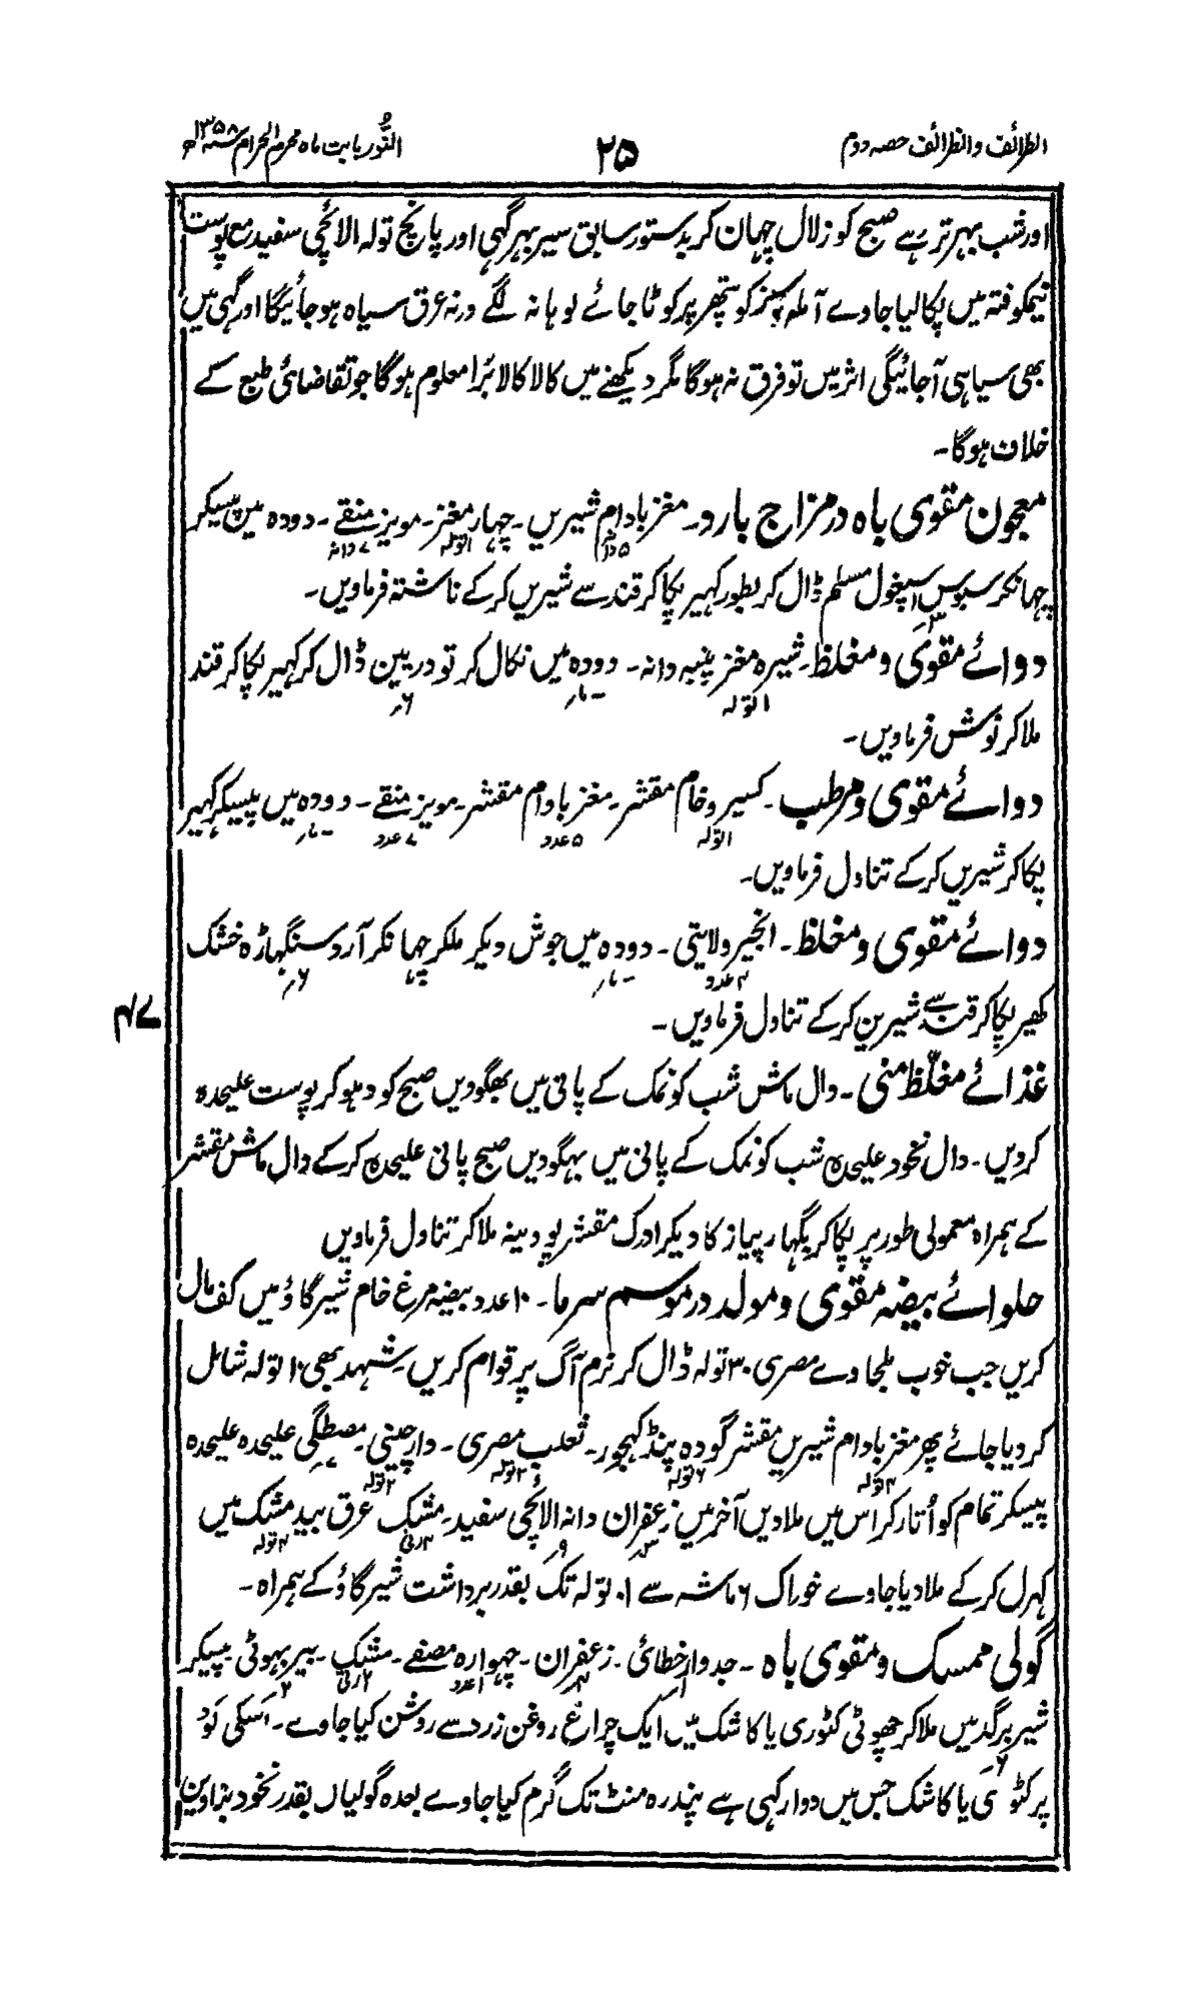 الظرائف والظرائف حصہ دوم
۲۵
النُّور بابت ماہ محرم الحرام ۱۳۵۸ھ
اور شب بہر تر رہے صبح کو زلال چہان کر بدستور سابق سیر بہر گہی اور پانچ تولہ الائچی سفید مع پوست
نیمکوفتہ میں پکا لیا جاوے آملہ سبز کو پتھر پر کوٹا جائے لوہا نہ لگے ورنہ عرق سیاہ ہو جائیگا اور گہی میں
بھی سیاہی آجائیگی اثر میں تو فرق نہ ہوگا مگر دیکھنے میں کالا کالا بُرا معلوم ہوگا جو تقاضائی طبع کے
خلاف ہوگا۔
معجون مقوی باہ در مزاج بارد۔ مغز بادام شیریں۔ چہار مغز۔ مویز منقے۔ دودہ میں پیسکر
۵ دانہ ۱ تولہ ۷ دانہ
چہانکر سبوس اسپغول مسلم ڈال کر بطور کہیر پکا کر قند سے شیریں کر کے ناشتہ فرماویں۔
دوائے مقوی و مغلظ۔ شیرہ مغز پنبہ دانہ۔ دودہ میں نکال کر تودریین ڈال کر کہیر پکا کر قند
۱ تولہ
ملا کر نوش فرماویں۔
دوائے مقوی و مرطب۔ کسیرو خام مقشر۔ مغز بادام مقشر۔ مویز منقے۔ دودہ میں پیسکر کہیر
۱ تولہ ۵ عدد ۷ عدد
پکا کر شیریں کر کے تناول فرماویں۔
دوائے مقوی و مغلظ۔ انجیر ولایتی۔ دودہ میں جوش دیکر ملکر چہانکر آرد سنگہاڑہ خشک
۴ عدد
کھیر پکا کر قند سے شیرین کر کے تناول فرماویں۔
۴۷
غذائے مغلّظ منی۔ دال ماش شب کو نمک کے پانی میں بھگودیں صبح کو دہو کر پوست علیحدہ
کردیں۔ دال نخود علیحدہ شب کو نمک کے پانی میں بہگودیں صبح پانی علیحدہ کر کے دال ماش مقشر
کے ہمراہ معمولی طور پر پکا کر بگہار پیاز کا دیکر ادرک مقشر پودینہ ملا کر تناول فرماویں
حلوائے بیضہ مقوی و مولد در موسم سرما۔ ۱۰ عدد بیضہ مرغ خام شیر گاؤ میں کف مال
کریں جب خوب ملجاوے مصری ۳۰ تولہ ڈال کر نرم آگ پر قوام کریں شہد بھی ۱۰ تولہ شامل
کردیا جائے پھر مغز بادام شیریں مقشر گودہ پنڈ کہجور۔ ثعلب مصری۔ دارچینی۔ مصطگی علیحدہ علیحدہ
۴ تولہ ۶ تولہ ۲ تولہ ۲ تولہ
پیسکر تمام کو اُتار کر اس میں ملادیں آخر میں زعفران دانہ الائچی سفید۔ مشک عرق بید مشک میں
۴ تولہ
کہرل کر کے ملا دیا جاوے خوراک ۶ ماشہ سے ۱۰ تولہ تک بقدر برداشت شیر گاؤ کے ہمراہ۔
گولی ممسک و مقوی باہ۔ جدوار خطائی۔ زعفران۔ چہوارہ مصفے۔ مشک۔ بیر بہوٹی پیسکر
۱ عدد ۲ رتی
شیر برگد میں ملا کر چھوٹی کٹوری یا کاشک میں ایک چراغ روغن زرد سے روشن کیا جاوے۔ اسکی لَو
پر کٹوری یا کاشک جس میں دوا رکہی ہے پندرہ منٹ تک گرم کیا جاوے بعدہ گولیاں بقدر نخود بناوین